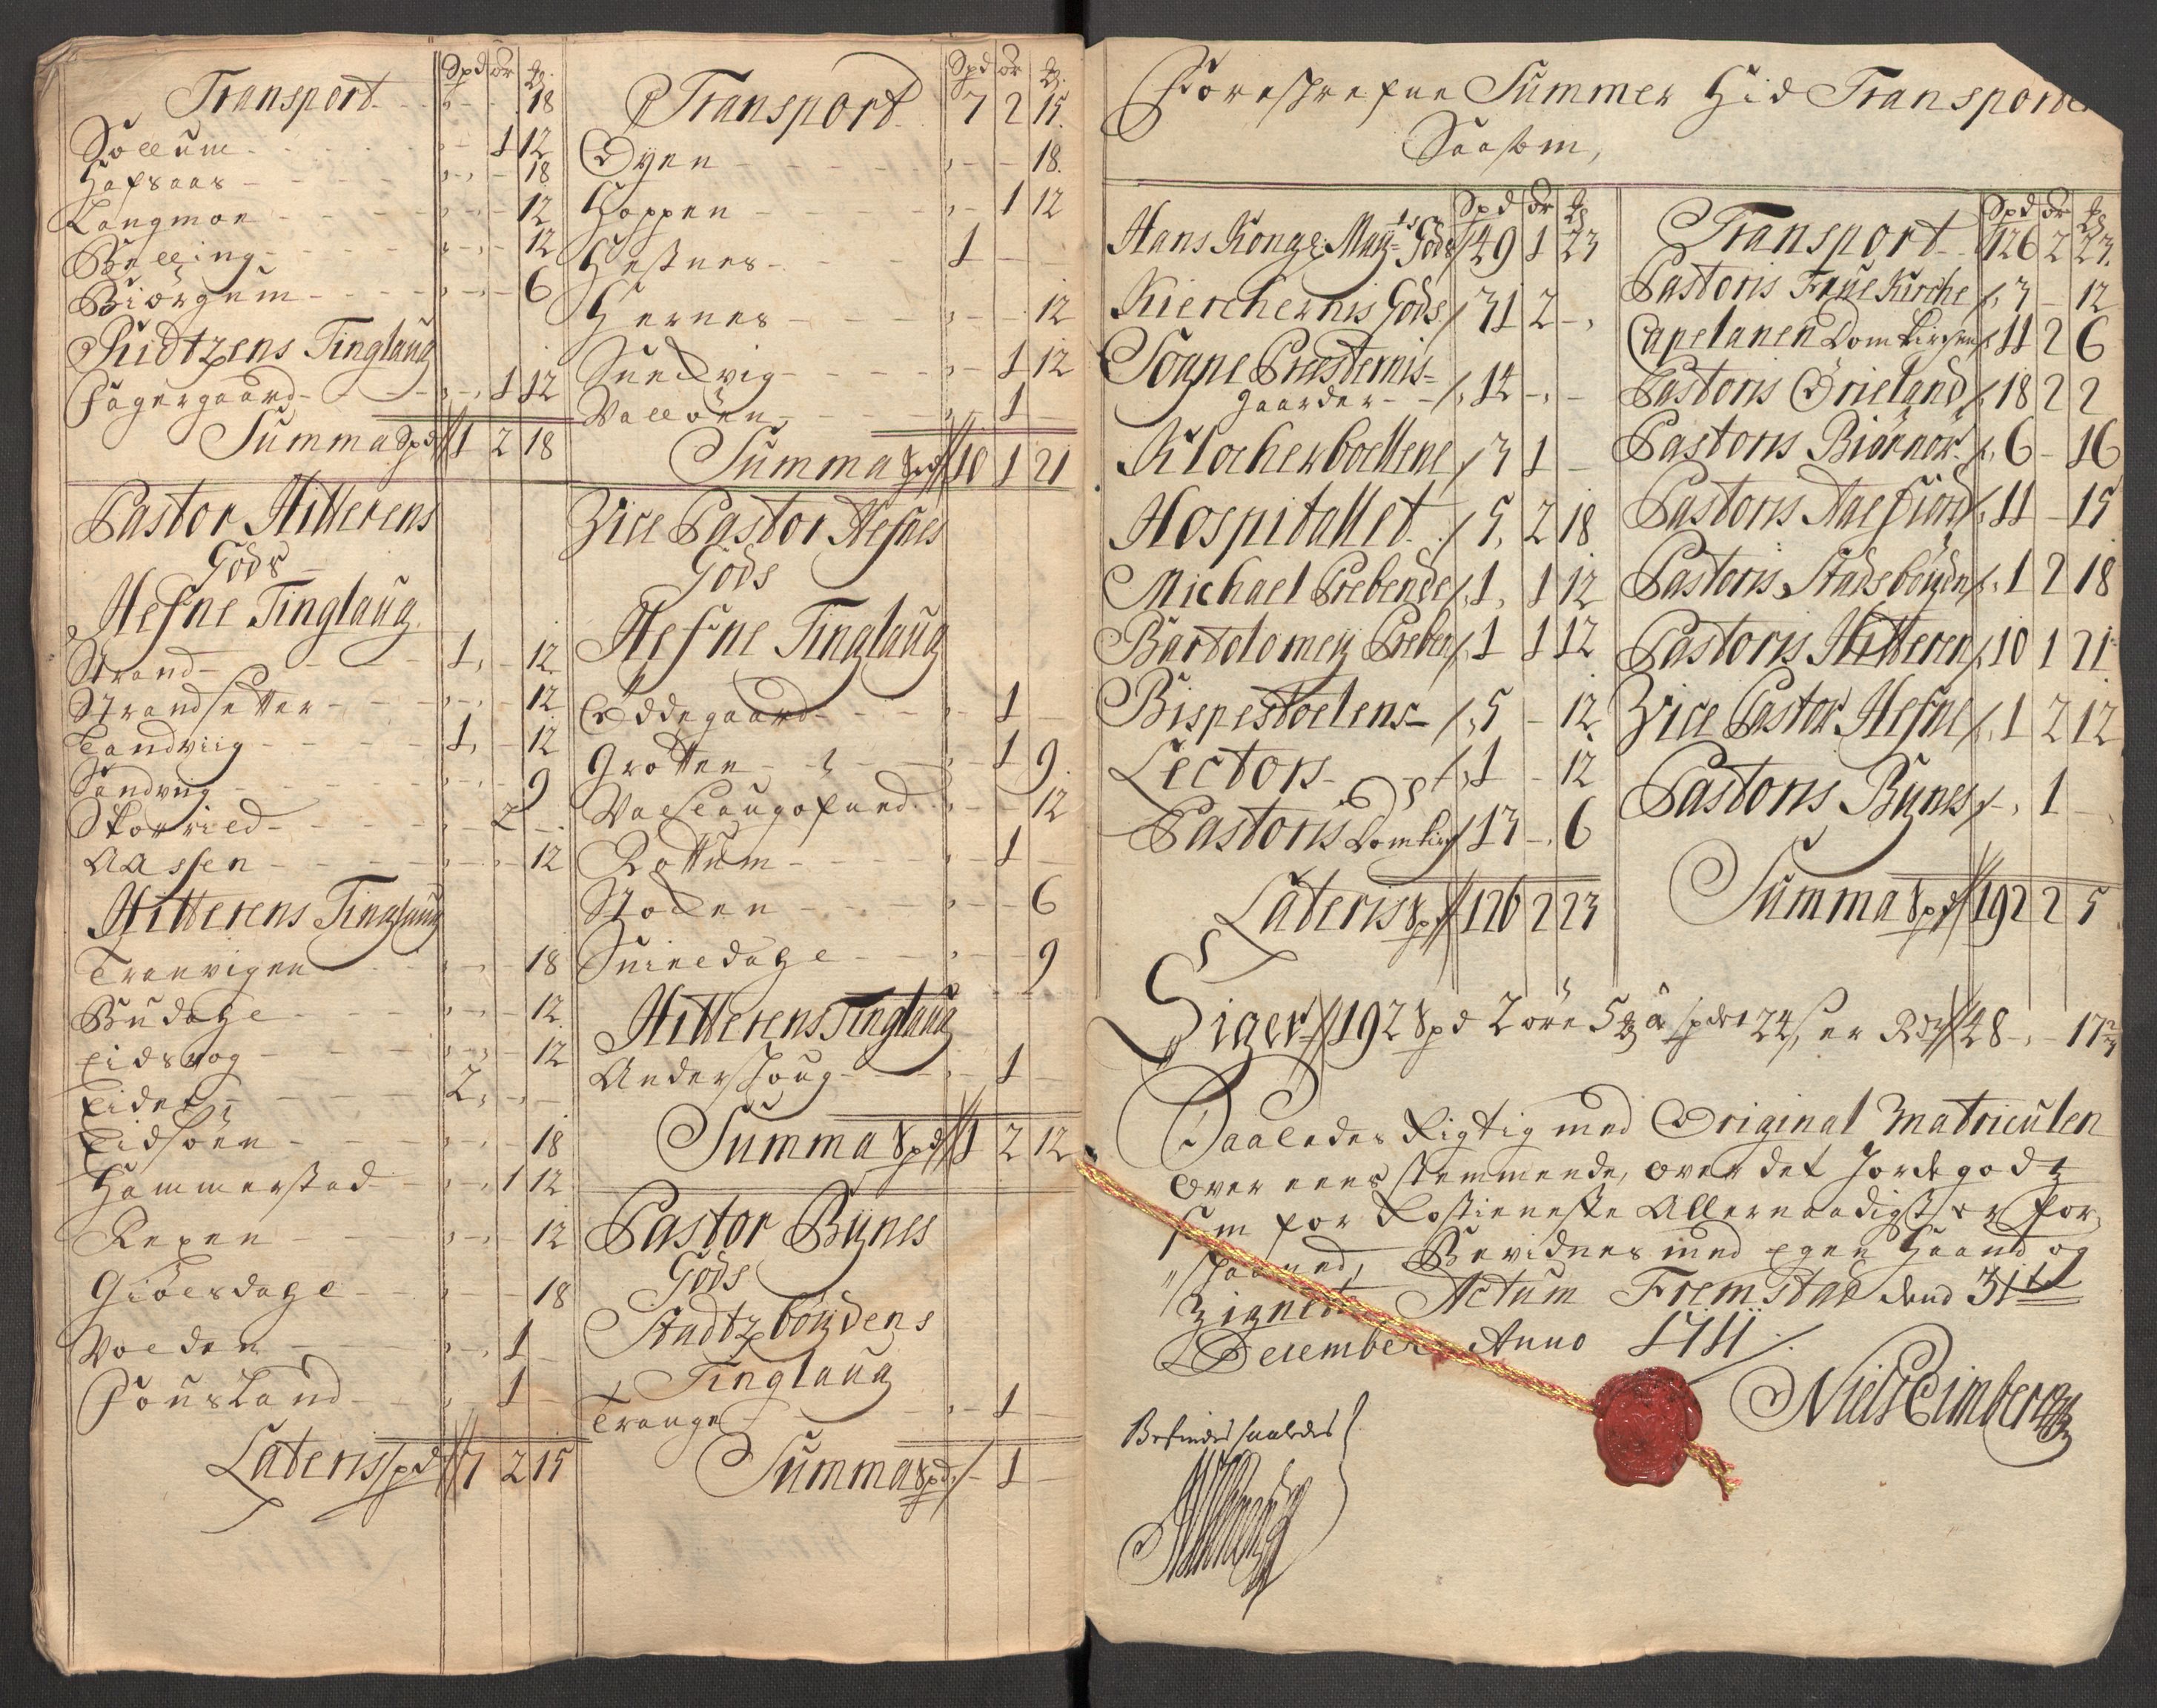 Spd ør
Transport - - - 18
Søllum - - 1 12
Hafsaas - - - 18
Langmoe - - - 12
Belling - - - 12
Biørgum - - - 6
Ridtzens Tinglaug
Fagergaard - - 1 12
Summa Spd 1 2 18
Pastor Hitterens
Gods
Hefne Tinglaug
Strand - 1 - 12
Strandsetter - - - 12
Tandviig - 1 - 12
Sandvug - - - 9
Skorrild - - 2 -
Aassen - - - 12
Hitterens Tinglaug
Tranvigen - - 18
Budahl - - - 12
Eidsvog - - - 12
Eidet - 2 - -
Eidsøen - - - 18
Hammerstad - - 1 12
Repen - - - 12
Giøesdahl - - - 18
Volden - - 1 -
Fousland - - 1 -
Lateris spd 7 2 15
Spd ør
Transport 7 2 15
Øyen - - - 18
Hoppen - - 1 12
Hestnes - 1 - -
Hernes - - - 12
Snekvig - - 1 12
Valløen - - 1 -
Summa Spd 10 1 21
Vice Pastor Hefnes
Gods
Hefne Tinglaug
Ødegaard - - 1 -
Grotten - - 1 9
- - 12
Rottum - - 1 -
Stolen - - - 6
Snildahl - - - 9
Hitterens Tinglaug
Anderskoug - - 1 -
Summa Spd 1 2 12
Pastor Bynes
Gods
Stadtzbøydens
Tinglaug
Trange - - 1 -
Summa spd - 1 -
Foreskrefne Summer Hid Transporte
Saasom,
Spd ør
Hans Kongl: May:ts Gods 49 1 23
Kierchernis Gods 31 2 -
Sogne Præsternis
gaarder - 14 - -
Klocherbollene 3 1 -
Hospitallet 5 2 18
Michael Prebende 1 1 12
Bartolomey Preben 1 1 12
Bispestoelens 5 - 12
Lectors 1 - 12
Pastoris Domkir 13 - 6
Lateris Spd 126 2 23
Spd ør
Transport 126 2 23
Pastoris Frue Kirche 3 - 12
Capelanen Domkirchen 11 2 6
Pastoris Ørieland 18 2 2
Pastoris Biørnør 6 - 16
Pastoris Aaefiord 11 - 15
Pastoris Stadsbøyden 1 2 18
Pastoris Hitteren 10 1 21
Vice Pastor Hefne 1 2 12
Pastoris Bynes - 1 -
Summa Spd 192 2 5
Siger 192 Spd 2 øre 5 a spdt 24 s er Rdr 48 - 17
Saaledes Rigtig med Original Matriculen
over eens stemmende, over det Jordegodz
som for Rostieneste Allernaadigst er for,
skaaned, Bevidnes med egen Haand og
Zignete Actum Fremstad dend 31te
December Anno 1711
Niels Eimberg
Befindes saaledes